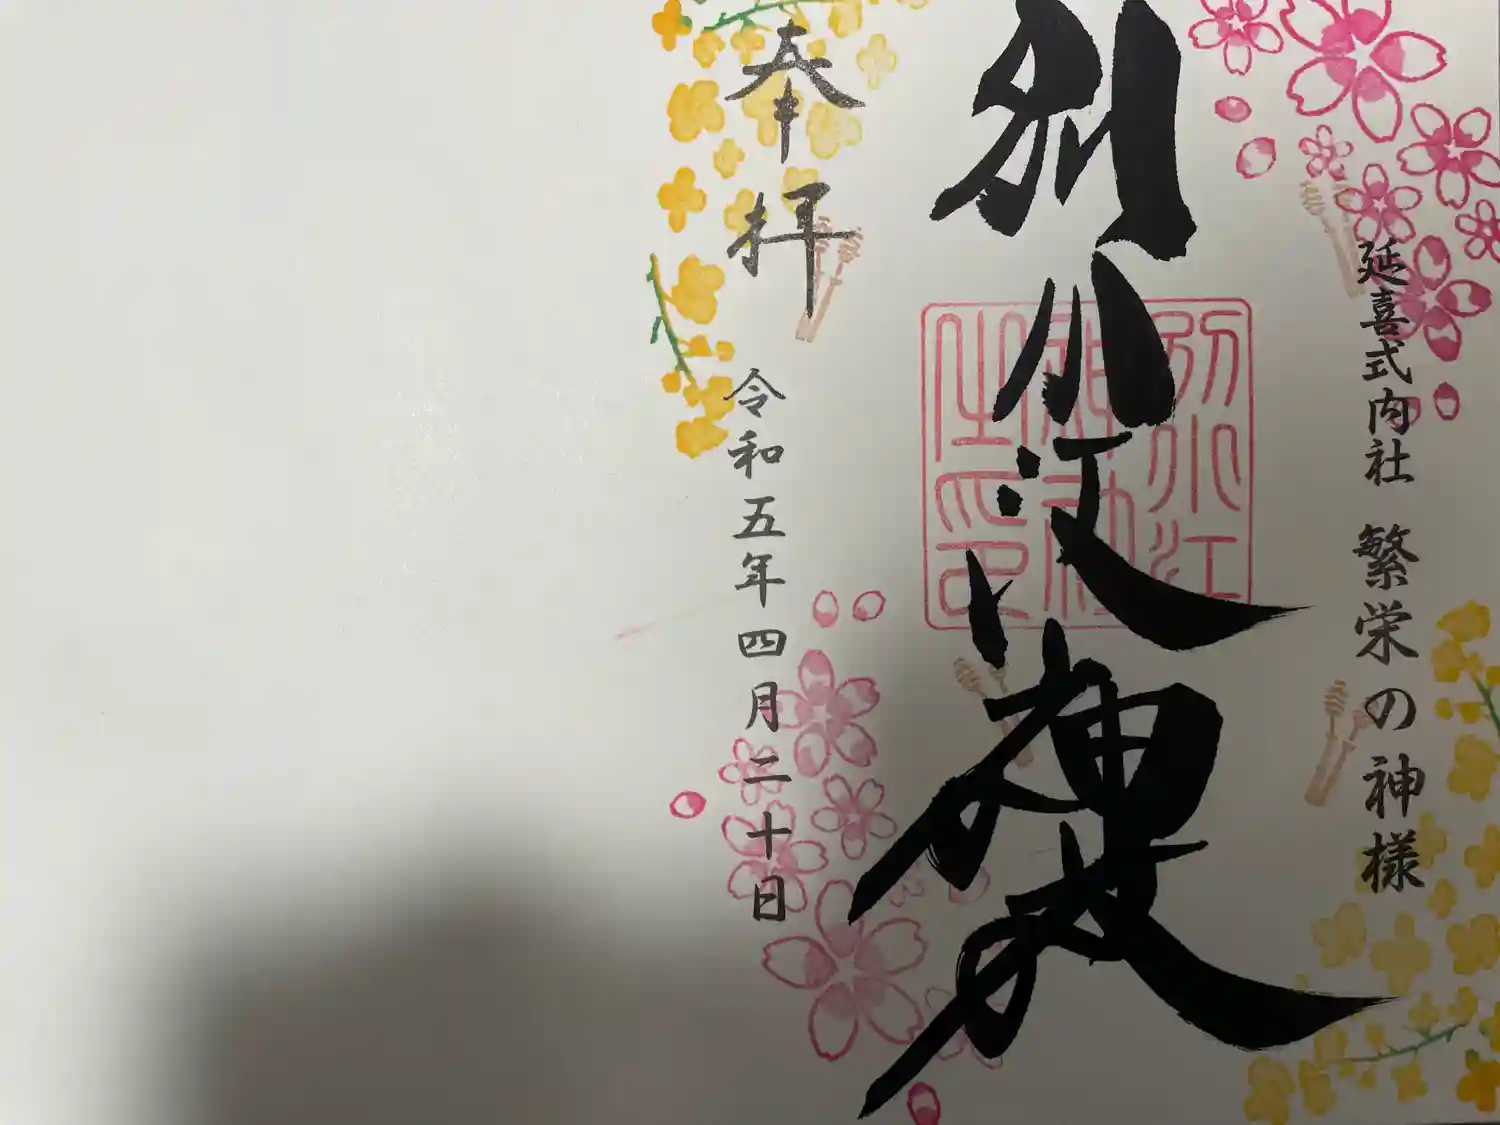 延喜式内社 繁栄の神様
別小江神社
別小江
神社
之印
奉拝
令和五年四月二十日